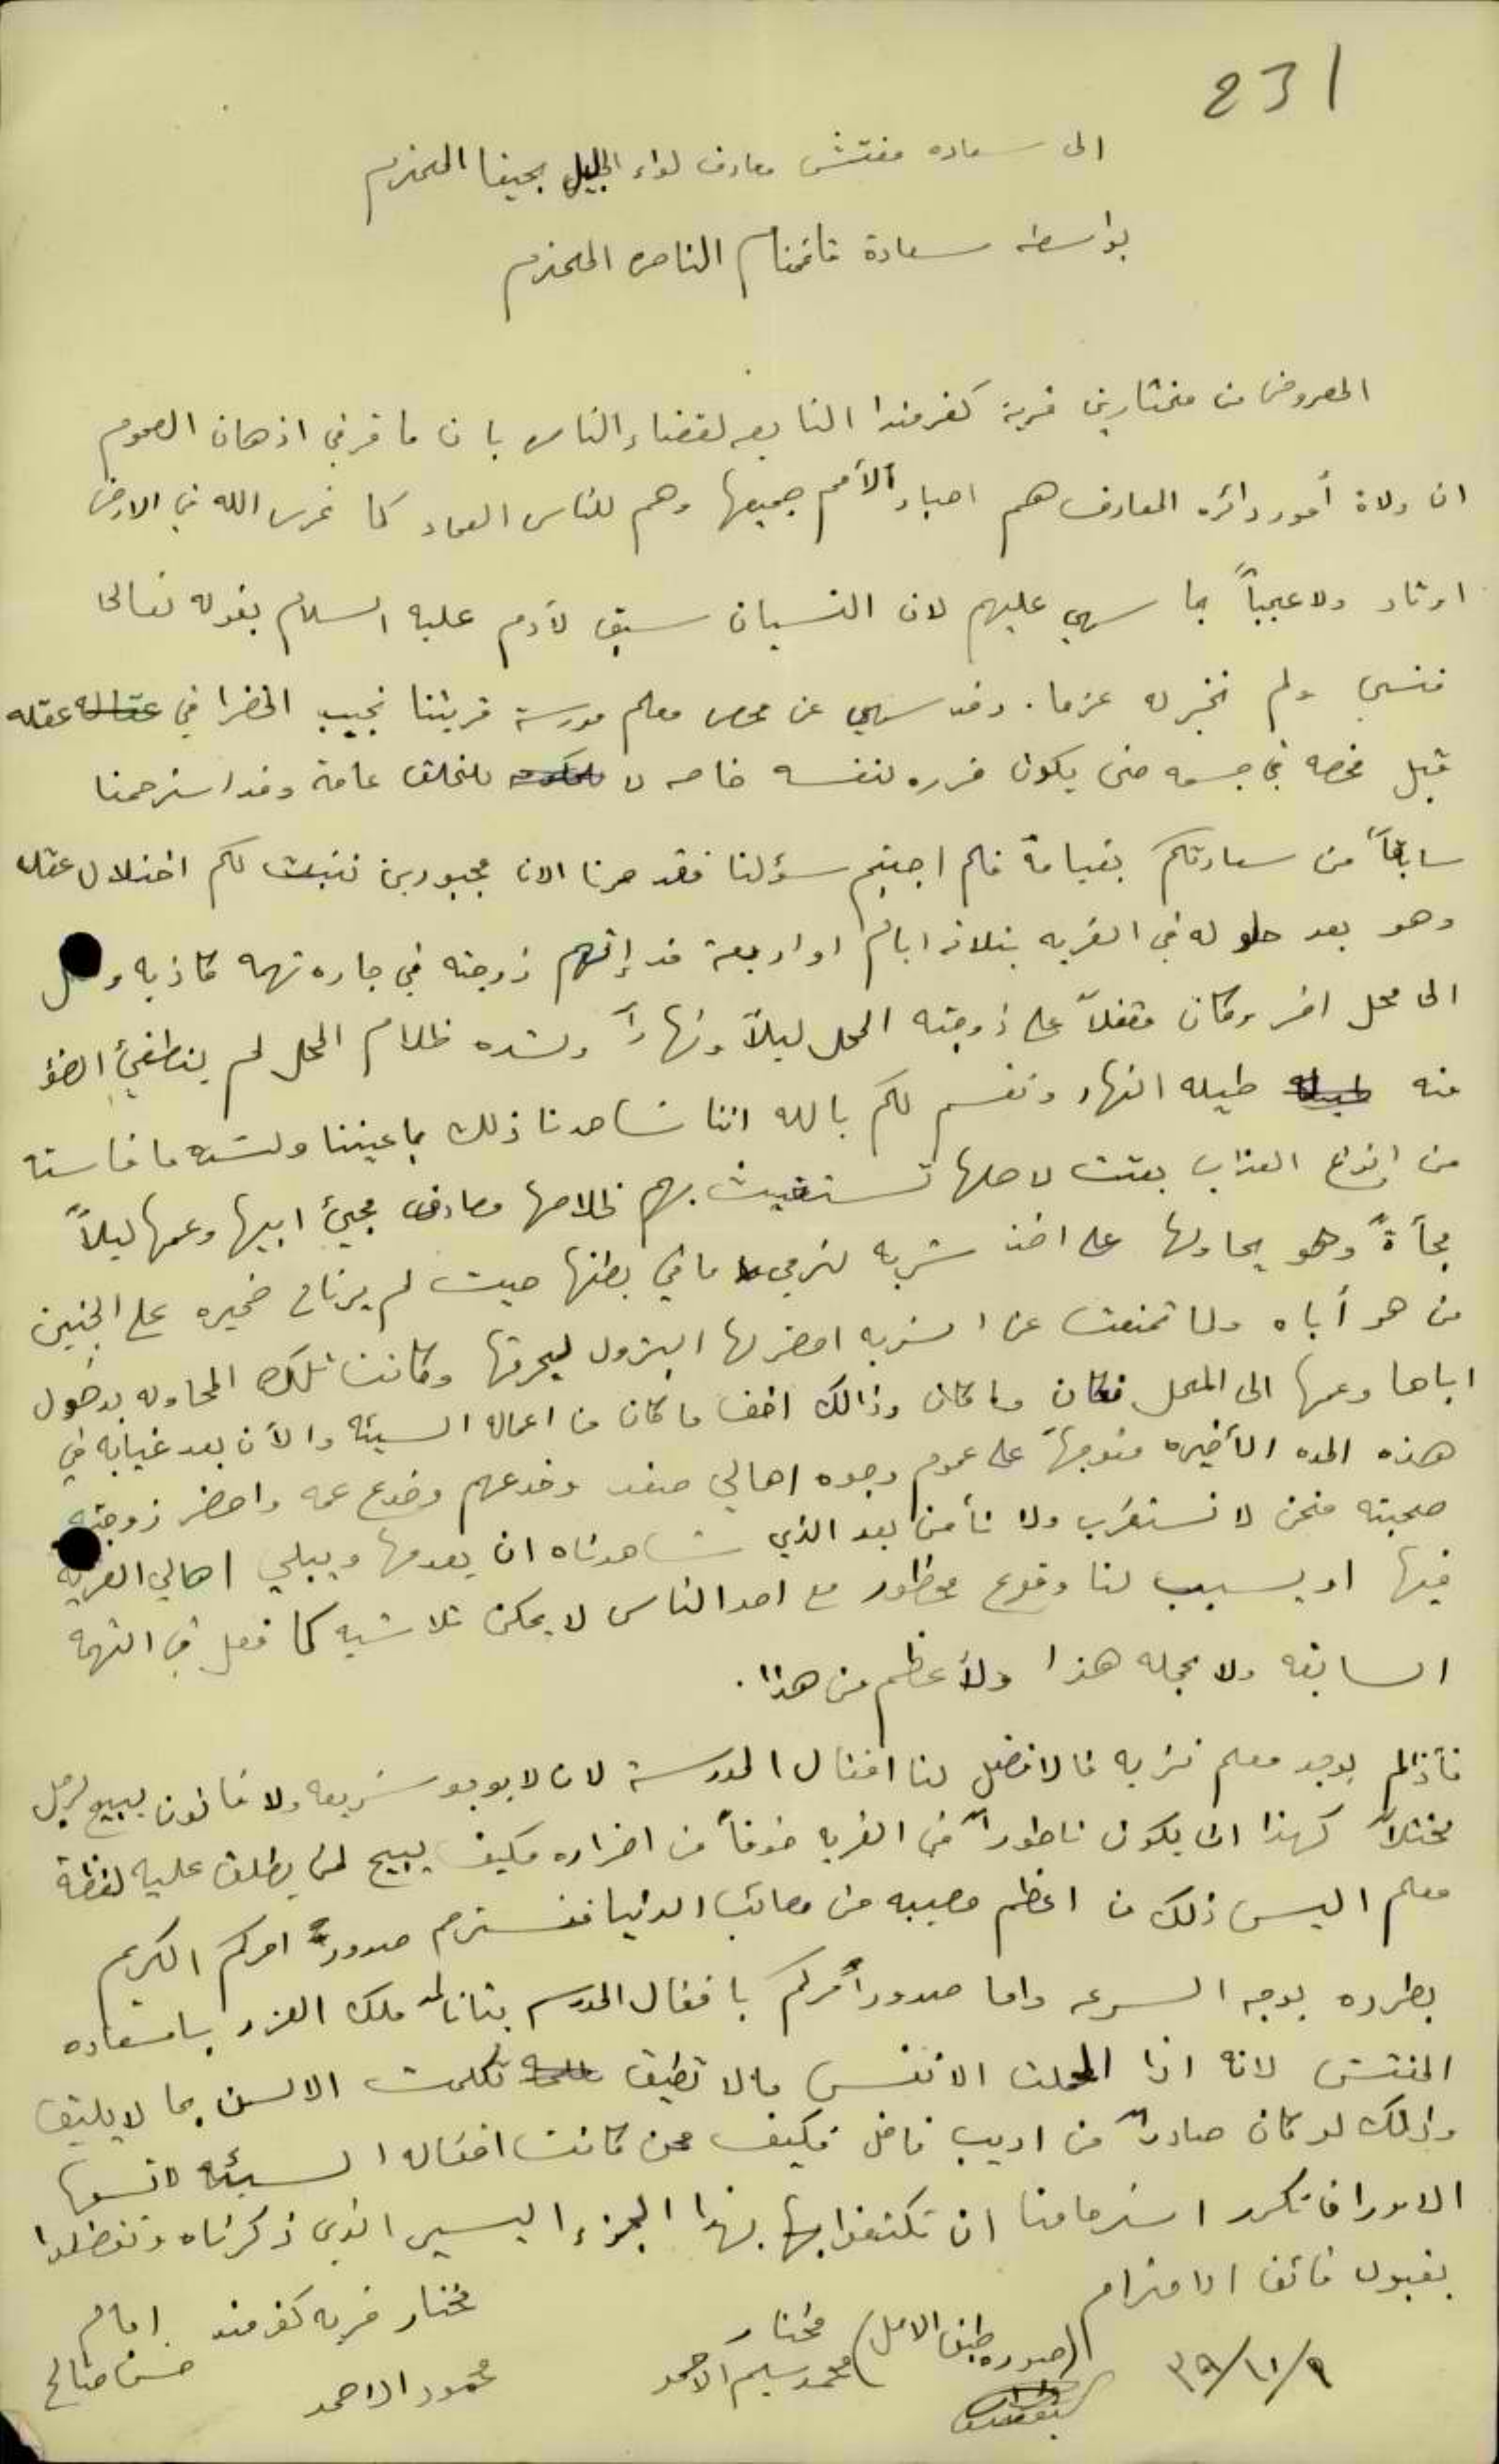 231
الى سعاده مفتش معارف لواء الجليل بحيفا المحترم
بواسطه سعادة قائمقام الناصره المحترم
المعروض من مختارين قرية كفرمندا التابعه لقضاء الناصره بان ما قر في اذهان العموم
ان ولاة أمور دائره المعارف هم احبار الأمم جميعها وهم للناس العماد كما غرس الله في الارض
اوتاد ولا عجباً بما سهي عليهم لان النسيان سبق لآدم عليه السلام بقوله تعالى
فنسي ولم نجد له عزما. وقد سهي عن فحص معلم مدرسة قريتنا نجيب الخضرا في عقله
قبل فحصه في جسمه حتى يكون ضرره لنفسه خاصه لا للخلق عامة وقد استرحمنا
سابقاً من سعادتكم فلم اجبتم سؤلنا فقد صرنا الان مجبورين نثبت لكم اختلال عقله
وهو بعد حلوله في القريه بثلاثه ايام او اربعة قد إتهم زوجته في جاره تهمه كاذبه
الى محل اخر وكان مقفلاً على زوجته المحل ليلاً ونهاراً ولشده ظلام المحل لم ينطفئ الضؤ
منه طيله النهار ونقسم لكم بالله اننا شاهدنا ذلك باعيننا ولشده ما قاسته
من انواع العذاب بعثت لاهلها تستغيث بهم لخلاصها فصادف مجيئ ابيها وعمها ليلاً
فجأةً وهو يحاولها على اخذ شربه لترمي ما في بطنها حيث لم يرتاح ضميره على الجنين
من هو أباه ولما تمنعت عن الشربه احضر لها البترول ليحرقها وكانت تلك المحاوله بدخول
اباها وعمها الى المحل فكان ما كان وذالك اخف ما كان من اعماله السيئه والآن بعد غيابه في
هذه المده الأخيره متوجهاً على عموم وجوه اهالي صفد وخدعهم وخدع عمه واحضر زوجته
صحبته فنحن لا نستغرب ولا نأمن بعد الذي شاهدناه ان يعدمها ويبلي اهالي القريه
فيها او يسبب لنا وقوع محظور مع احد الناس لا يمكن تلاشيه كما فعل في التهمه
السابقه ولا عجله هذا ولأعظم من هذا.
فأذا لم يوجد معلم نزيه فالافضل لنا اقفال المدرسة لان لا يوجد شريعه ولا قانون يبيح لرجل
مختلاً كهذا ان يكون ناطوراً في القريه خوفاً من اضراره فكيف يبيح لمن يطلق عليه لفظة
معلم اليس ذلك من اعظم مصيبه من مصائب الدنيا فنسترحم صدور امركم الكريم
بطرده بوجه السرعه واما صدور أمركم باقفال المدرسه بتاتا ياسعاده
المفتش لانه اذا الانفس ما لا تطيق تكلمت الالسن بما لا يليق
وذلك لو كان صادراً من اديب فاضل فكيف ممن كانت افعاله السيئه لا تسعها
الاوراق نكرر استرحامنا ان تكتفوا بهذا الجزء اليسير الذي ذكرناه وتفضلوا
بقبول فائق الاحترام
٩/١١/٣٩ (صوره طبق الاصل) مختار محمد سليم الاحمد مختار قريه كفرمندا محمود الاحمد امام حسن صالح